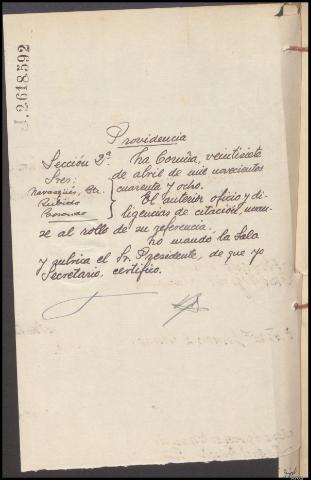 J.2618592
Providencia
Sección 2ª La Coruña, veintisiete
Sres: de abril de mil novecientos
Navasqués, cuarenta y ocho.
Rubido El anterior oficio y di-
ligencias de citación, úna-
se al rollo de su referencia.
Lo mandó la Sala
y rubrica el Sr. Presidente, de que yo
Secretario, certifico.